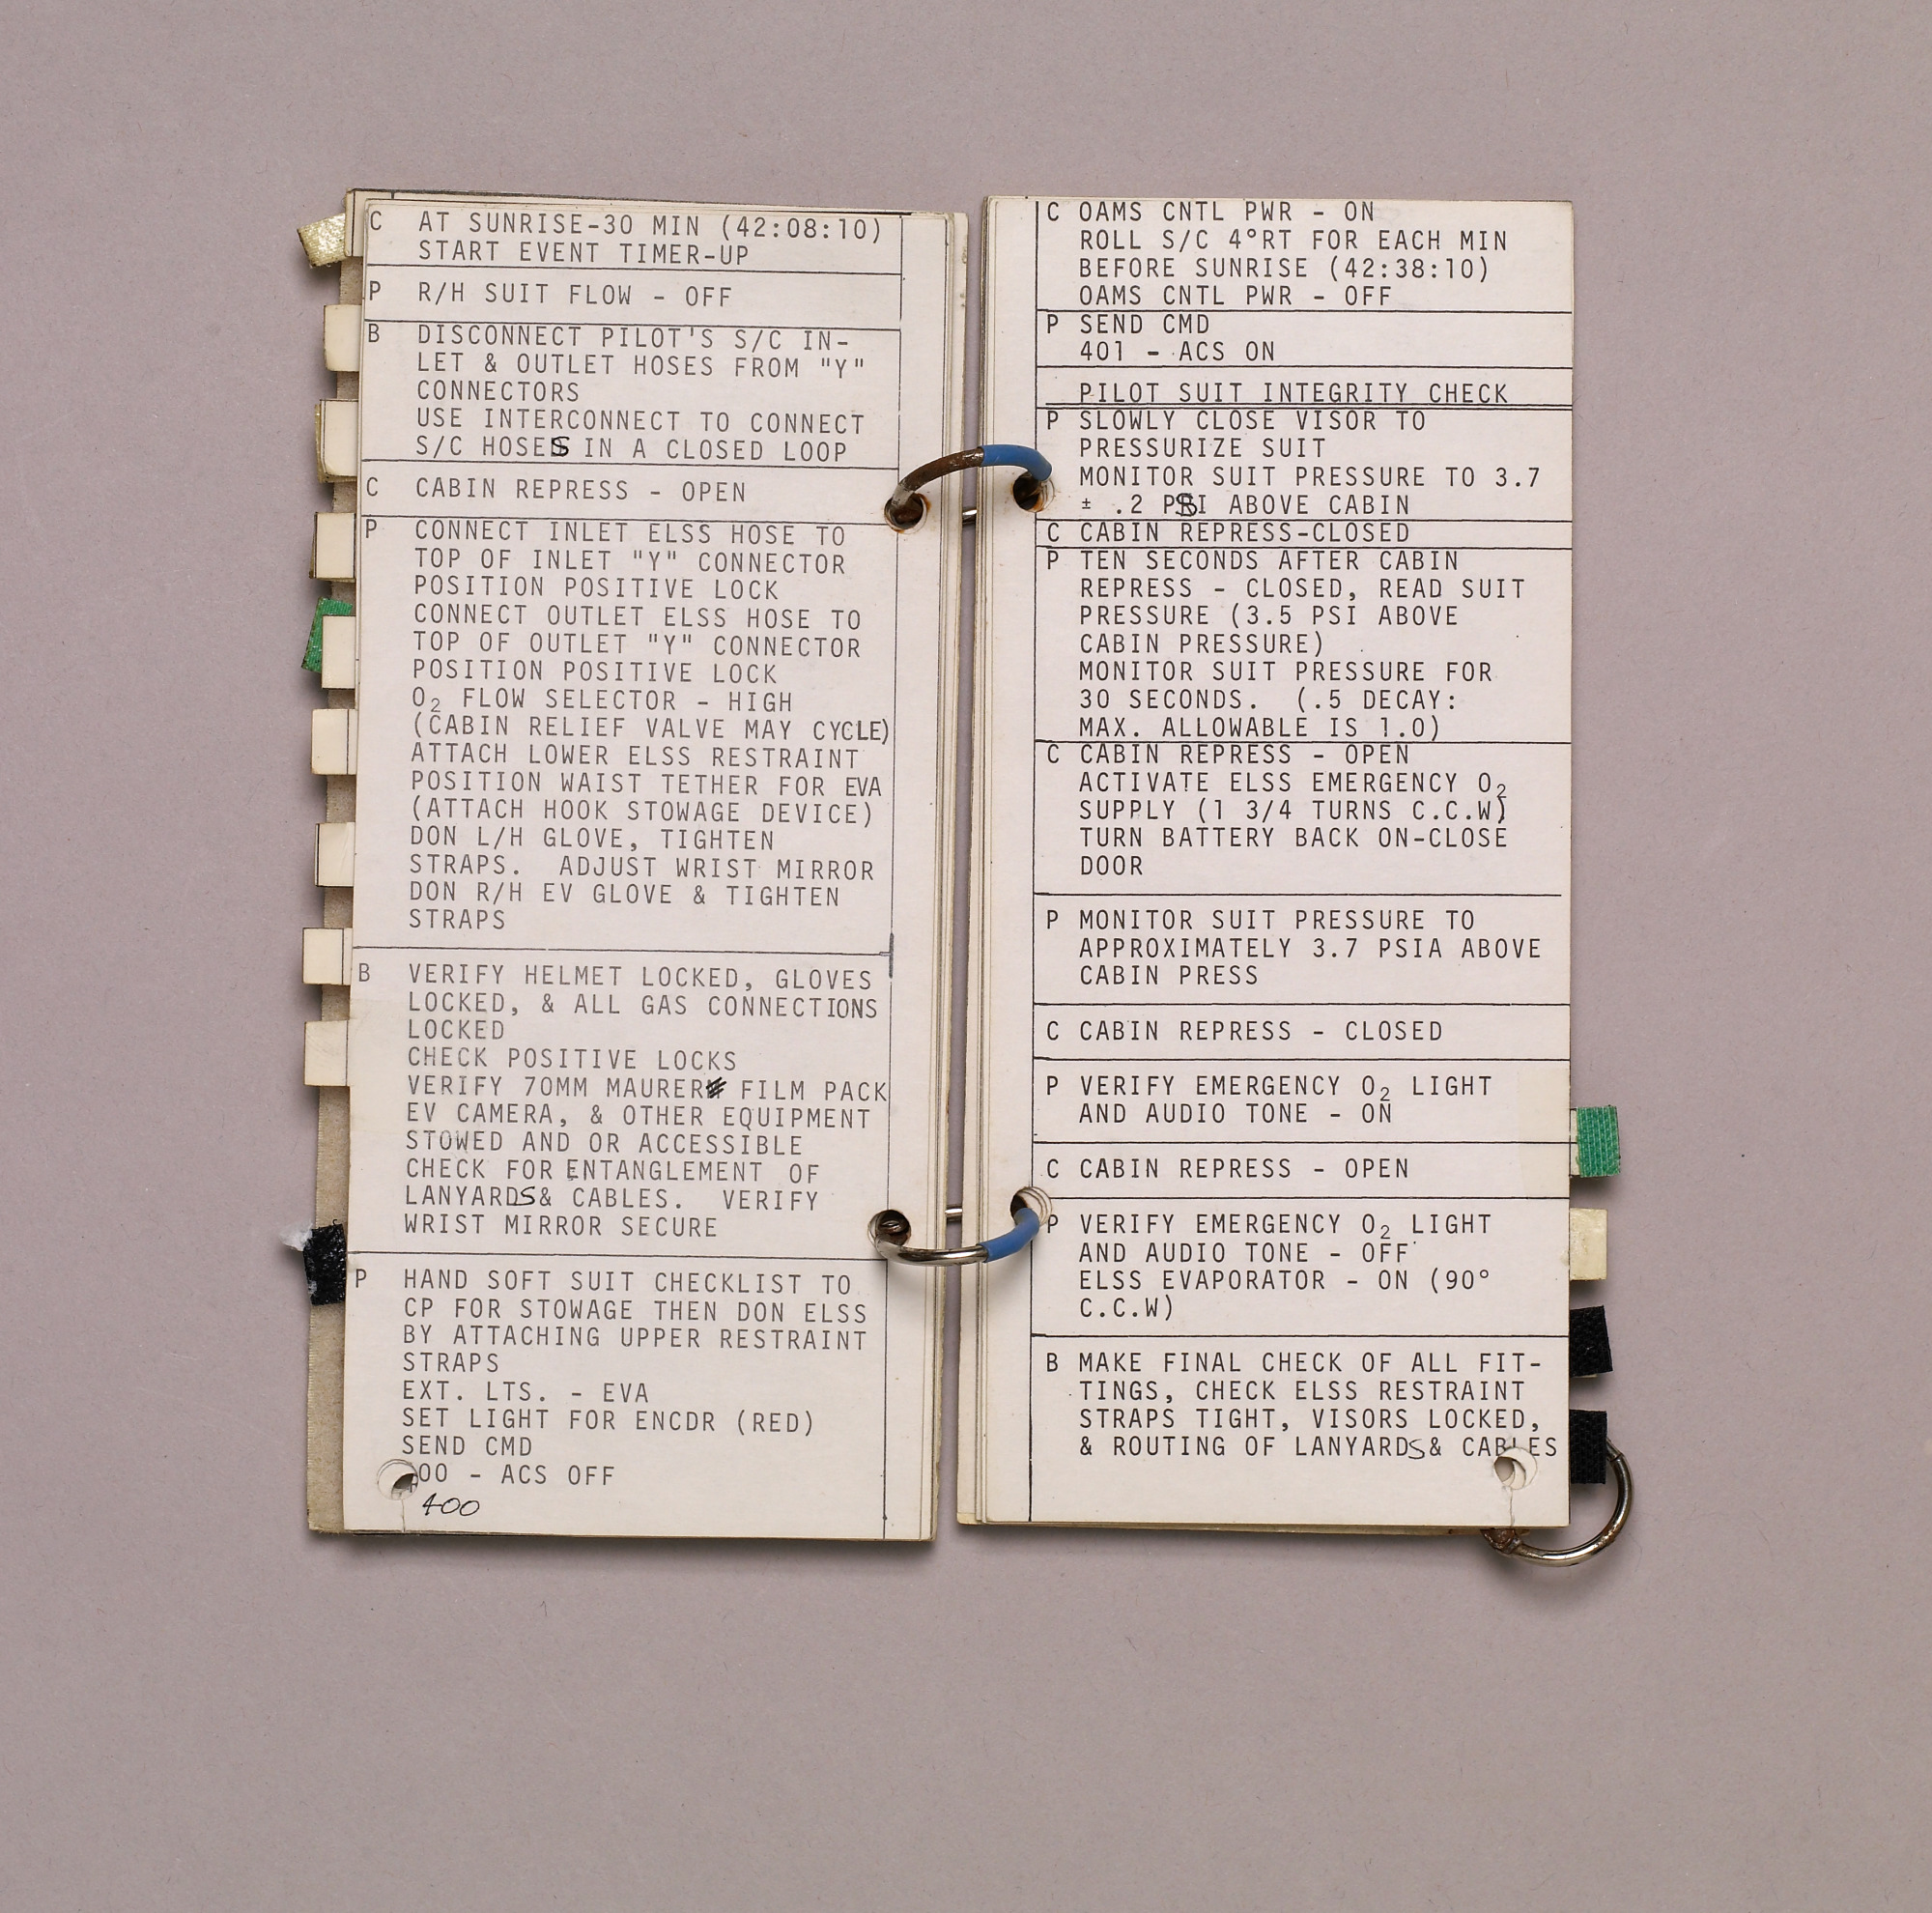 C AT SUNRISE-30 MIN (42:08:10)
START EVENT TIMER-UP
P R/H SUIT FLOW - OFF
B DISCONNECT PILOT'S S/C IN-
LET & OUTLET HOSES FROM "Y"
CONNECTORS
USE INTERCONNECT TO CONNECT
S/C HOSES IN A CLOSED LOOP
C CABIN REPRESS - OPEN
P CONNECT INLET ELSS HOSE TO
TOP OF INLET "Y" CONNECTOR
POSITION POSITIVE LOCK
CONNECT OUTLET ELSS HOSE TO
TOP OF OUTLET "Y" CONNECTOR
POSITION POSITIVE LOCK
O₂ FLOW SELECTOR - HIGH
(CABIN RELIEF VALVE MAY CYCLE)
ATTACH LOWER ELSS RESTRAINT
POSITION WAIST TETHER FOR EVA
(ATTACH HOOK STOWAGE DEVICE)
DON L/H GLOVE, TIGHTEN
STRAPS. ADJUST WRIST MIRROR
DON R/H EV GLOVE & TIGHTEN
STRAPS
B VERIFY HELMET LOCKED, GLOVES
LOCKED, & ALL GAS CONNECTIONS
LOCKED
CHECK POSITIVE LOCKS
VERIFY 70MM MAURER FILM PACK
EV CAMERA, & OTHER EQUIPMENT
STOWED AND OR ACCESSIBLE
CHECK FOR ENTANGLEMENT OF
LANYARDS & CABLES. VERIFY
WRIST MIRROR SECURE
P HAND SOFT SUIT CHECKLIST TO
CP FOR STOWAGE THEN DON ELSS
BY ATTACHING UPPER RESTRAINT
STRAPS
EXT. LTS. - EVA
SET LIGHT FOR ENCDR (RED)
SEND CMD
00 - ACS OFF
400
C OAMS CNTL PWR - ON
ROLL S/C 4°RT FOR EACH MIN
BEFORE SUNRISE (42:38:10)
OAMS CNTL PWR - OFF
P SEND CMD
401 - ACS ON
PILOT SUIT INTEGRITY CHECK
P SLOWLY CLOSE VISOR TO
PRESSURIZE SUIT
MONITOR SUIT PRESSURE TO 3.7
± .2 PSI ABOVE CABIN
C CABIN REPRESS-CLOSED
P TEN SECONDS AFTER CABIN
REPRESS - CLOSED, READ SUIT
PRESSURE (3.5 PSI ABOVE
CABIN PRESSURE)
MONITOR SUIT PRESSURE FOR
30 SECONDS. (.5 DECAY:
MAX. ALLOWABLE IS 1.0)
C CABIN REPRESS - OPEN
ACTIVATE ELSS EMERGENCY O₂
SUPPLY (1 3/4 TURNS C.C.W)
TURN BATTERY BACK ON-CLOSE
DOOR
P MONITOR SUIT PRESSURE TO
APPROXIMATELY 3.7 PSIA ABOVE
CABIN PRESS
C CABIN REPRESS - CLOSED
P VERIFY EMERGENCY O₂ LIGHT
AND AUDIO TONE - ON
C CABIN REPRESS - OPEN
P VERIFY EMERGENCY O₂ LIGHT
AND AUDIO TONE - OFF
ELSS EVAPORATOR - ON (90°
C.C.W)
B MAKE FINAL CHECK OF ALL FIT-
TINGS, CHECK ELSS RESTRAINT
STRAPS TIGHT, VISORS LOCKED,
& ROUTING OF LANYARDS & CABLES